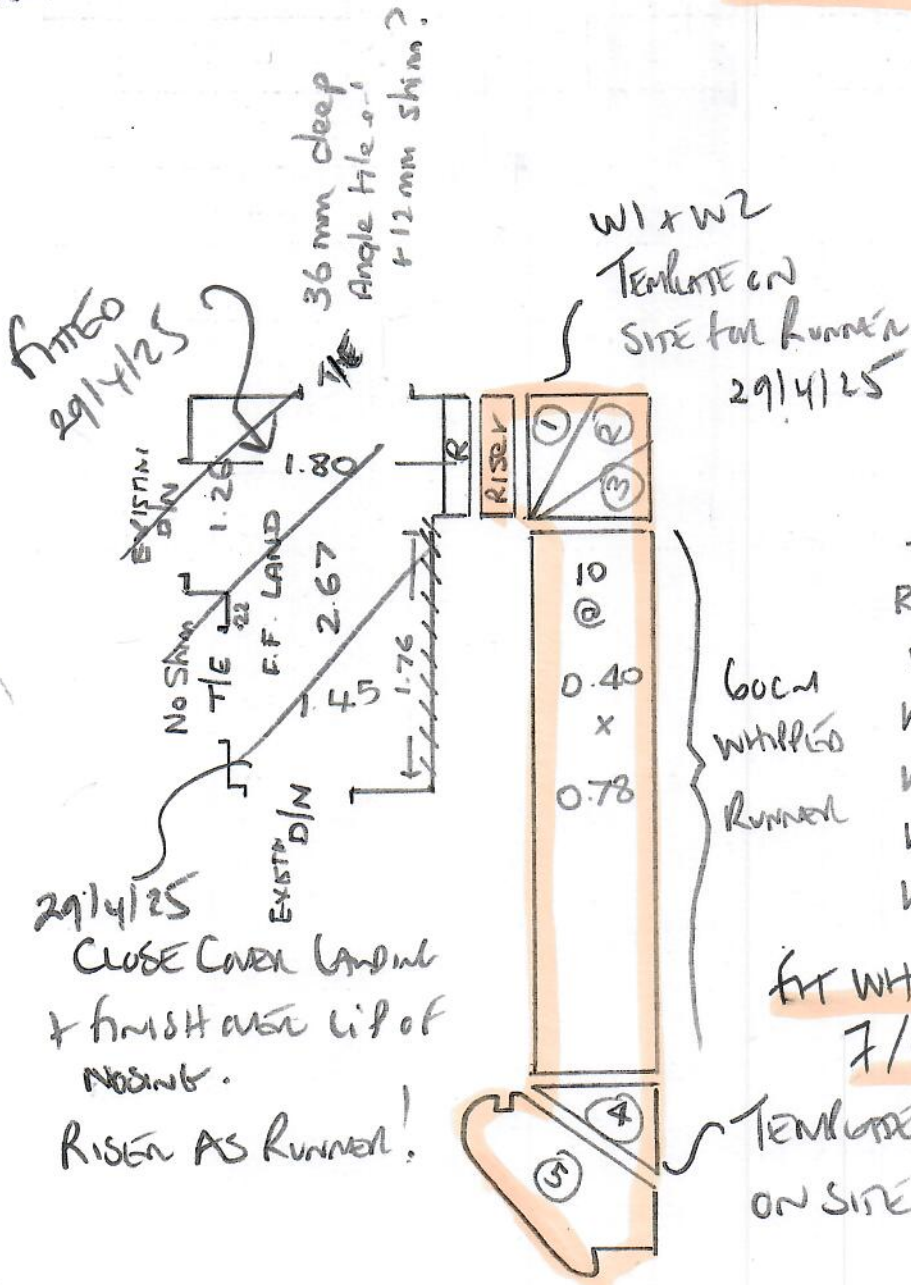 36 mm deep
Angle tile
+ 12 mm shim?
T/E
FITTED
29/4/25
W1 + W2
TEMPLATE ON
SITE FOR RUNNER
29/4/25
EXISTING
D/N
1.26
1.80
R
RISER
1
2
3
NO SHIM
T/E
22
F.F. LAND
2.67
1.45
1.76
EXISTN
D/N
10
@
0.40
x
0.78
60CM
WHIPPED
RUNNER
29/4/25
CLOSE COVER LANDING
+ FINISH OVER LIP OF
NOSING.
RISER AS RUNNER!
FIT WH
7/
4
5
TEMPLATE
ON SITE